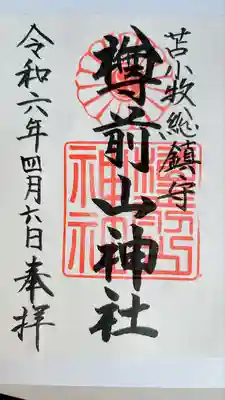 苫小牧総鎮守
樽前山神社
令和六年四月六日奉拝